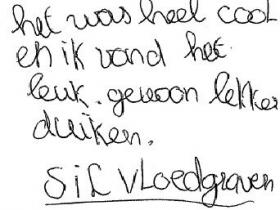 het was heel cool
en ik vond het
leuk. gewoon lekker
duiken.
Sil vloedgraven